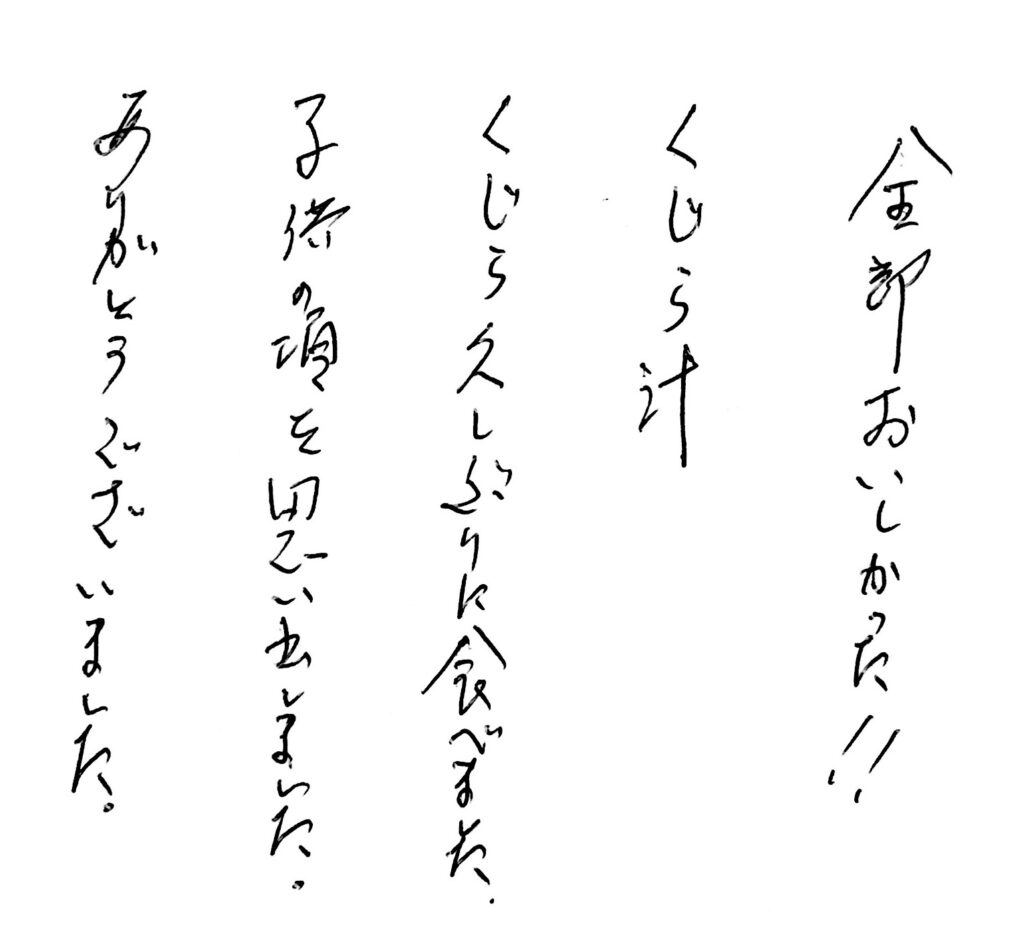 全部おいしかった!!
くじら汁
くじら久しぶりに食べました.
子供の頃を思い出しました。
ありがとうございました。